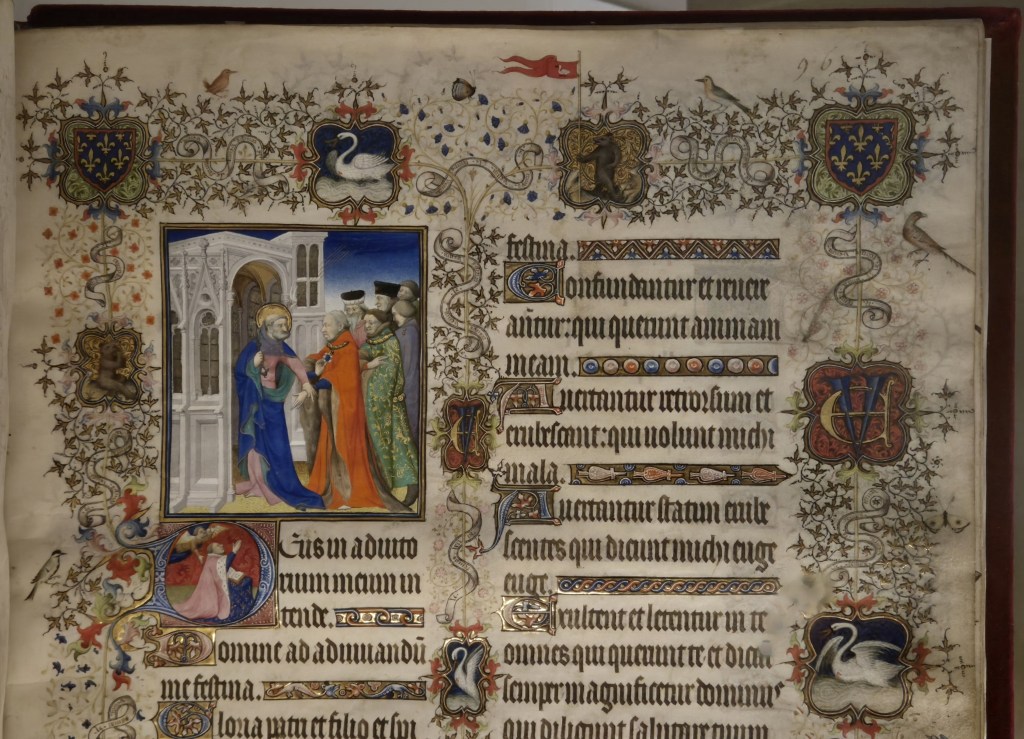 96
Deus in adiuto
rium meum in
tende.
Domine ad adiuuandū
me festina.
Gloria patri et filio et spi
festina.
Confundantur et reuere
antur: qui querunt animam
meam.
Auertantur retrorsum et
erubescant: qui uolunt michi
mala.
Auertantur statim erube
scentes qui dicunt michi euge
euge.
Exultent et letentur in te
omnes qui querunt te et dicant
semper magnificetur dominus
qui diligunt salutare tuum
EV
EV